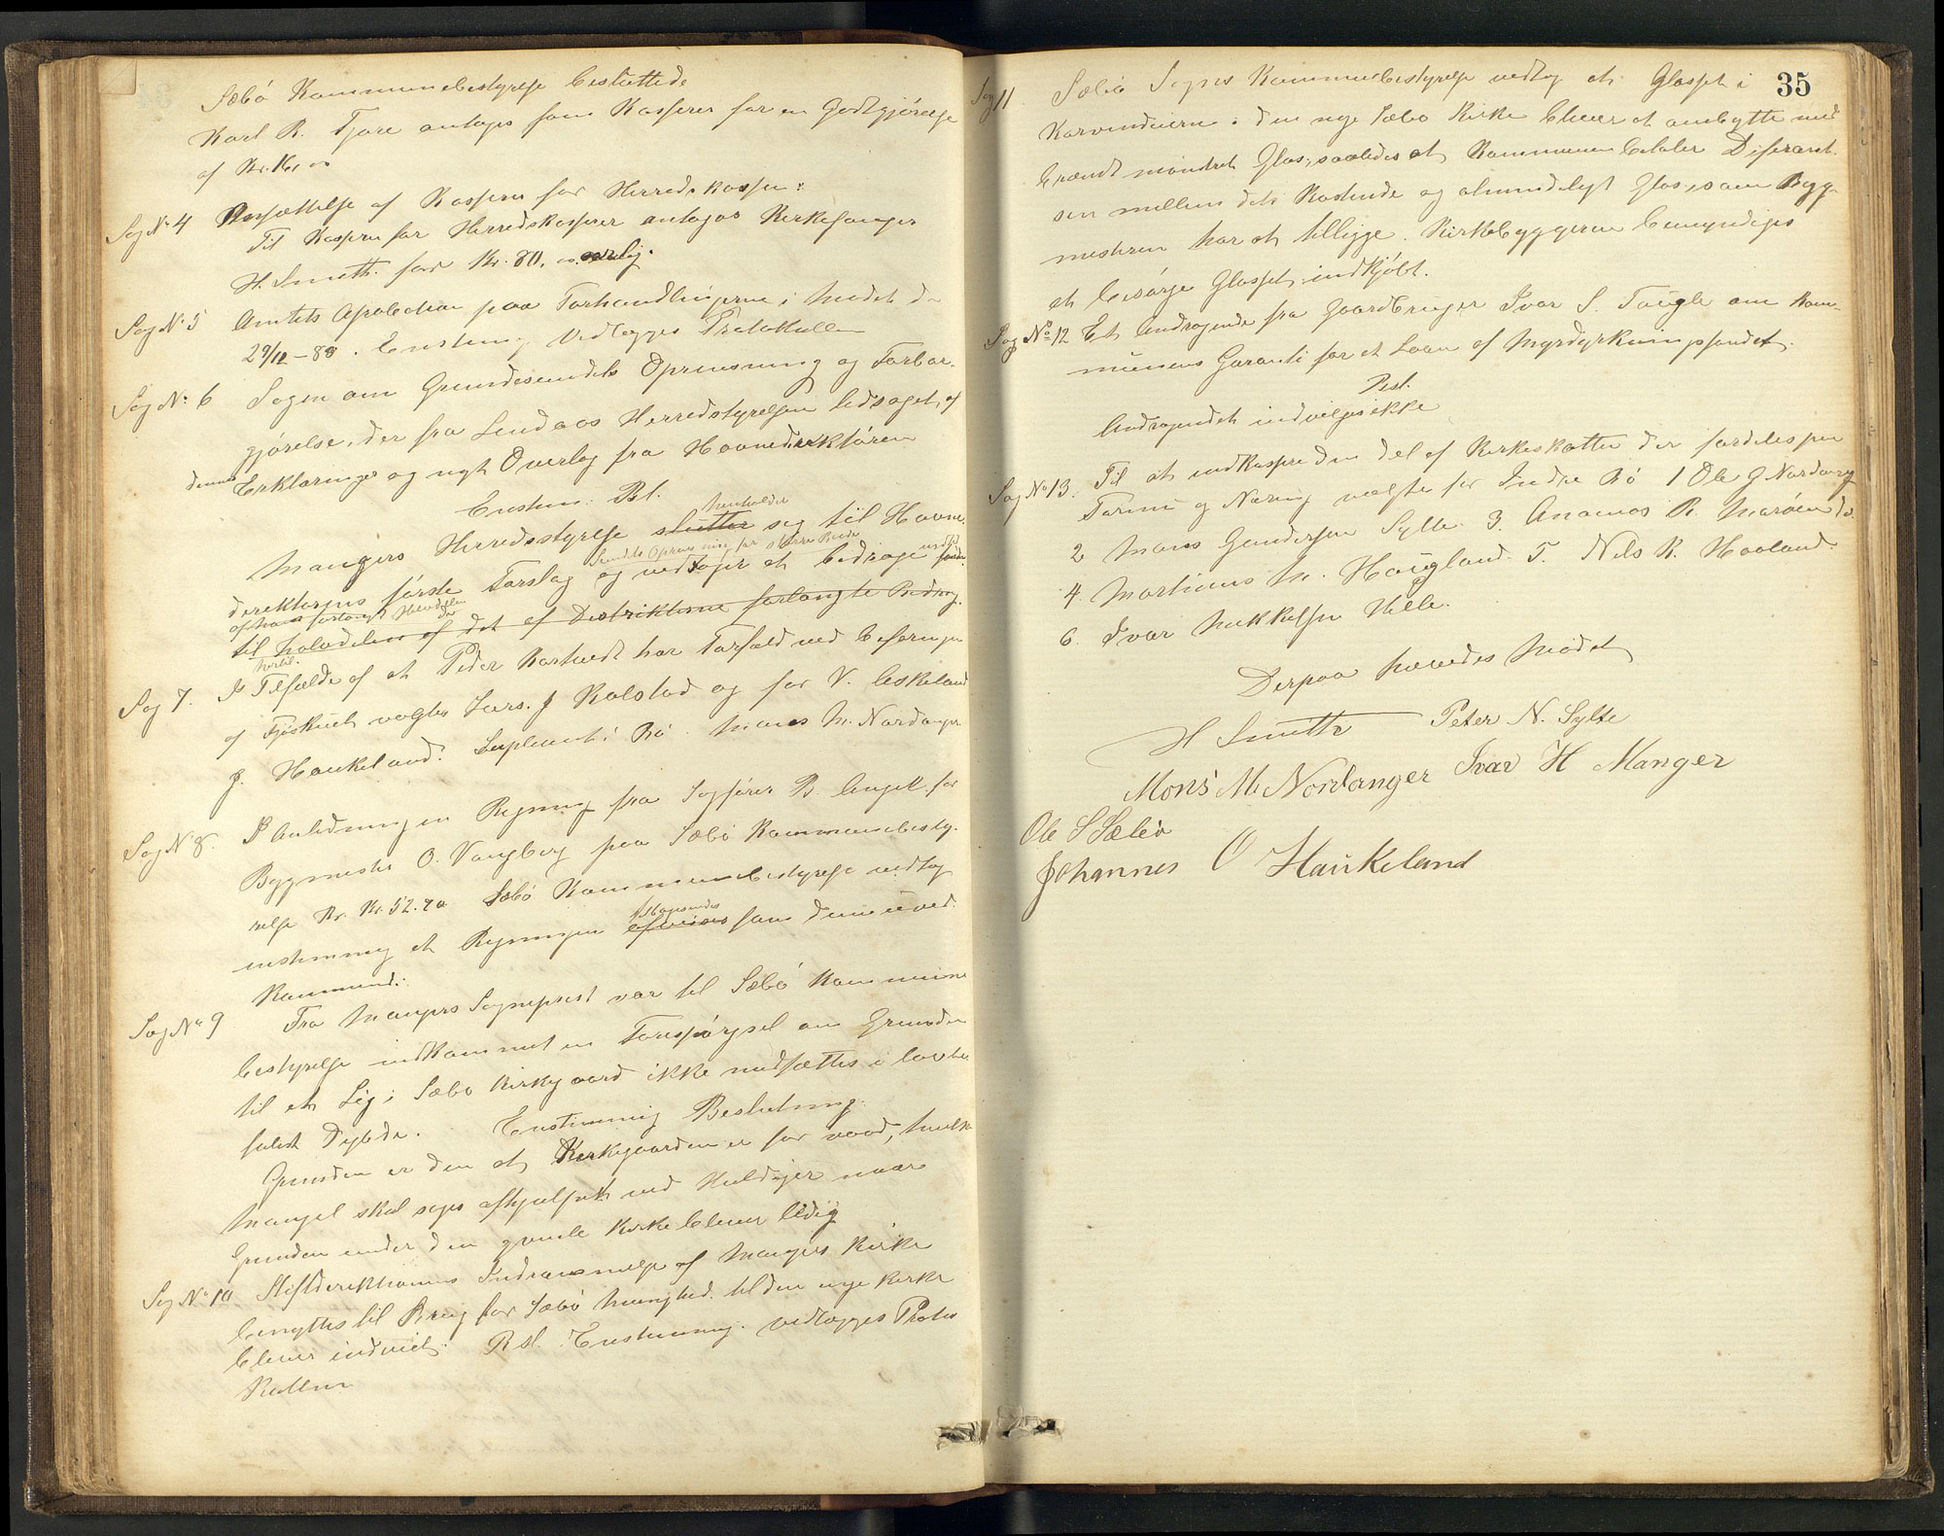 Sæbø Kommunebestyrelse besluttede
Karl R. Tjore antages som Kasserer for en Godtgjørelse
af Kr. 16,00
Sag No 4 Ansættelse af Kasserer for Herredskassen:
Til Kasserer for Herredskasserer antages Kirkesanger
H. Smith for Kr. 80,00 aarlig.
Sag No 5 Amtets Aprobation paa Forhandlingerne i Mødet d
29/12-88. Enstemig Vedlægges Protokollen
Sag No 6 Sagen om Grundesundets Oprensning og Forbar-
gjørelse, der fra Lindaas Herredstyrelsen ledsaget, af
dennes Erklæringer og nyt Overlag fra Havnedirektøren
Enstem: Bsl.
henholder
Mangers Herredsstyrelse slutter seg til Havne-
Sundets Oprensning for større Baade
direktørens første Forslag og vedtager at bedrage
af hans forlangt Halvdelen
til halvdelen af det af Destrikterne forlangte Bidrag.
hertil.
Sag 7. I Tilfælde af at Peder Kartvedt har Forfald ved Besøringen
af Fjøskuet valgtes Lars J Kolstad og for N. Askeland
J. Haukeland. Supleant i Bø. Mons M. Nordanger
Sag No 8. I Anledning en Regning fra Sagfører B. Angell for
Bygmester O. Vangberg paa Sæbø Kommunebesty-
relse Kr. 52.70 Sæbø Kommunebestyrelse vedtog
tilbagesendes
enstemmig at Regningen afvises som denne uved-
kommende.
Sag No 9 Fra Mangers Sogneprest var til Sæbø Kommune
bestyrelse indkommet en Forespørgsel om Grunden
til at Lig i Sæbø Kirkegaard ikke nedsættes i lovbe
falet Dybde. Enstemmig Beslutning.
Grunden er den at Kirkegaarden er for vaad, hvilk
Mangel skal søges afhjulpet ved Uddiger naar
Grunden under den gamle Kirke bliver ledig
Sag No 10 Stiftdirektionens Indrømmelse af Mangers Kirke
benyttes til Brug for Sæbø Menighed til den nye Kirke
bliver indviet. Bsl. Enstemmig. vedlægges Proto
kollen
35
Sag 11. Sæbø Sogns Kommunebestyrelse vedtog at Glasset i
Korvinduerne i den nye Sæbø Kirke bliver at ombytte med
brændt mønstret Glas, saaledes at Kommunen betaler Diferanc-
sen mellem dets Kostende og almindeligt Glas, som Byg-
mesteren har at tillægge. Kirkebyggeren bemyndiges
at besørge Glasset indkjøbt.
Sag No 12 Et Andragende fra Gaardbruger Ivar S. Taugle om Kom-
munens Garanti for et Laan af Myrdyrkningsfondet.
Besl.
Andragendet indvilges ikke
Sag No 13. Til at indkassere den del af Kirkeskatten der fordeles paa
Formue og Næring valgtes for Indre Bø 1 Ole J Nordang
2 Mons Gundersen Sylte. 3. Ananias R. Marøen
4. Martinus M. Haugland. 5. Nils R. Haaland.
6. Ivar Mikkelsen Helle.
Derpaa hævedes Mødet
H Smith Peter N. Sylte
Mons M. Nordanger Ivar H Manger
Ole S Sæbø
Johannes O Haukeland